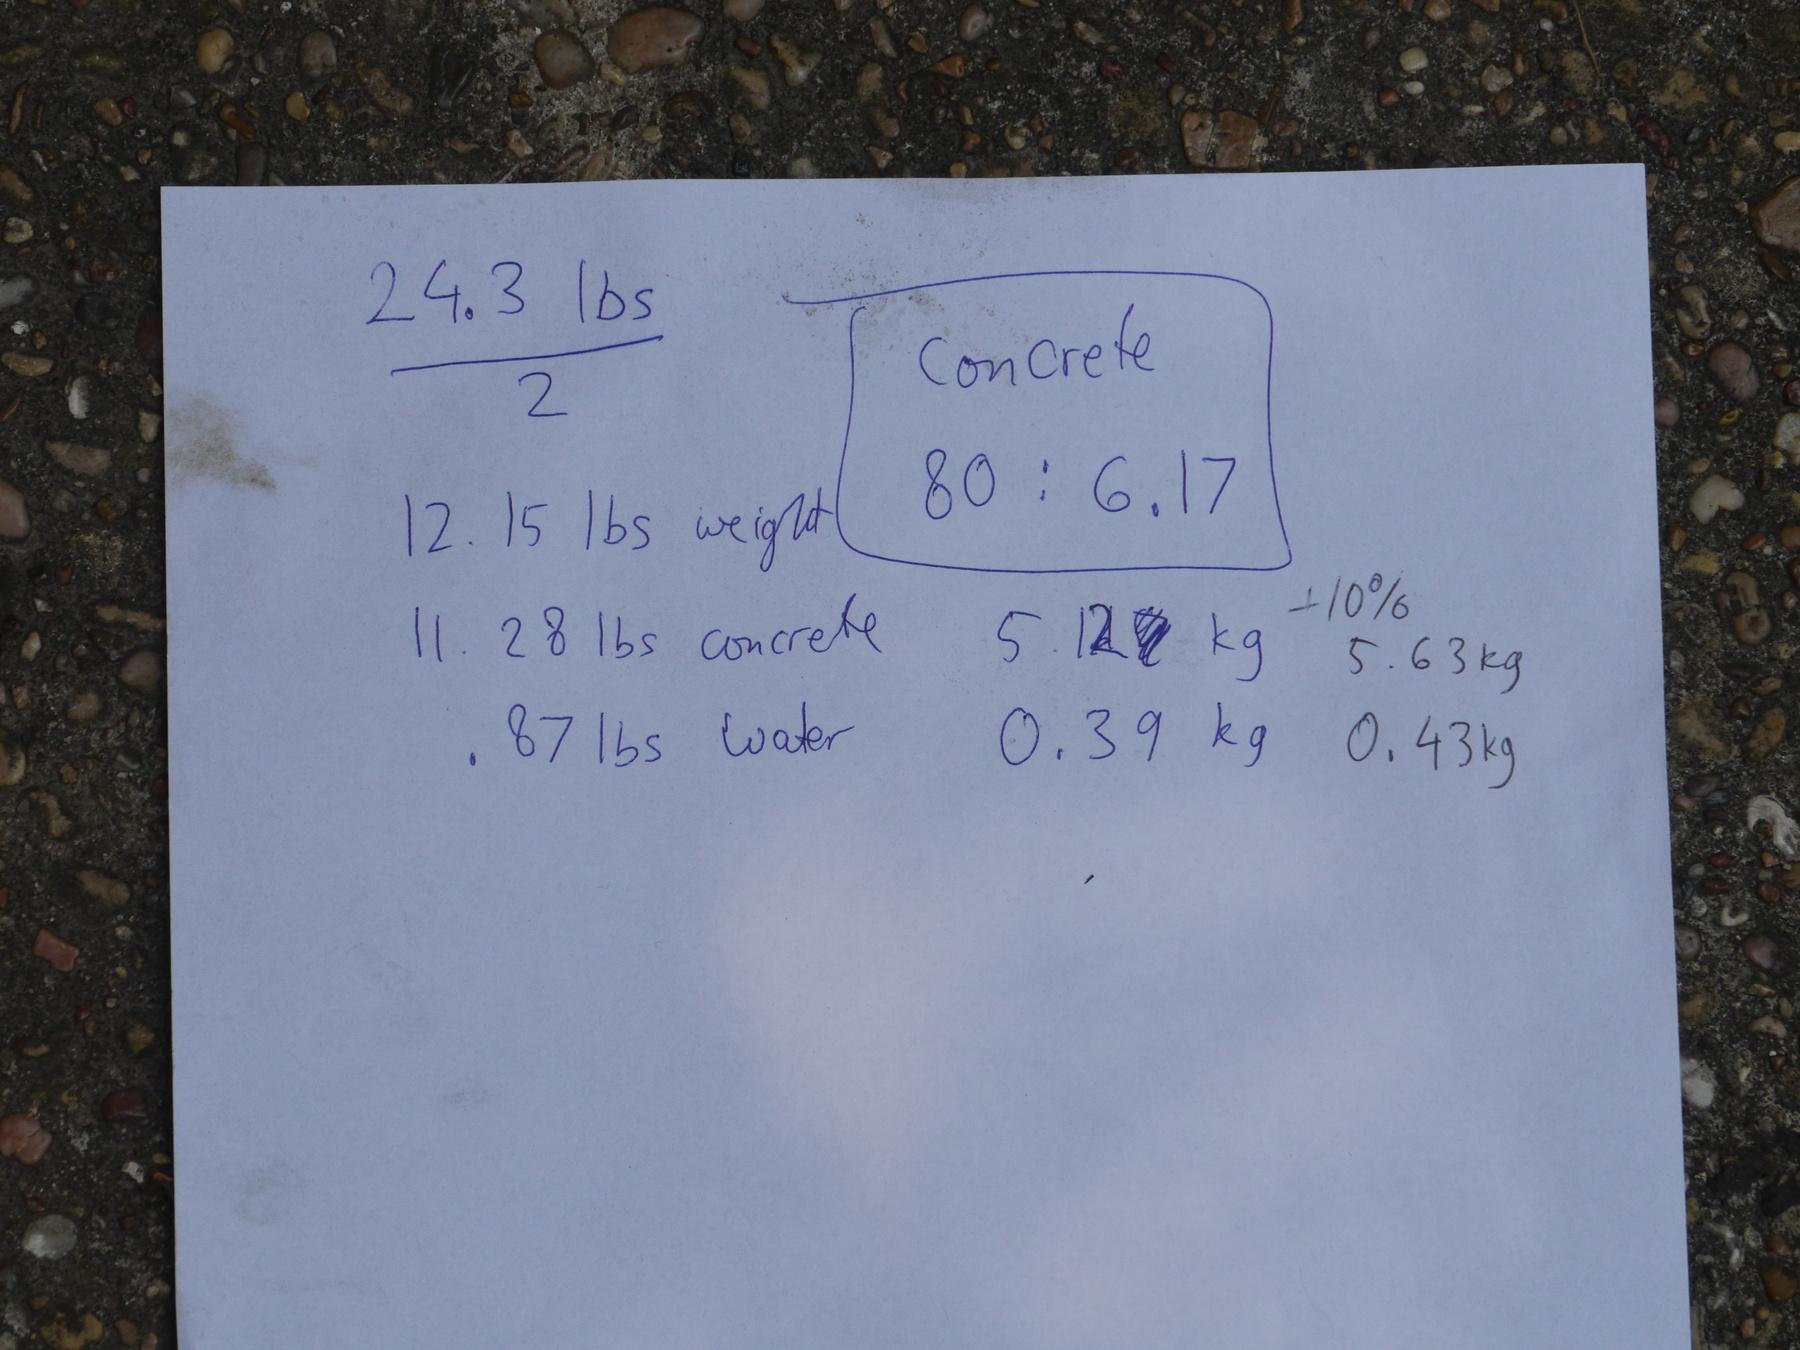 24.3 lbs
2
Concrete
80 : 6.17
12.15 lbs weight
11.28 lbs concrete 5.12 kg +10% 5.63kg
.87 lbs water 0.39 kg 0.43kg